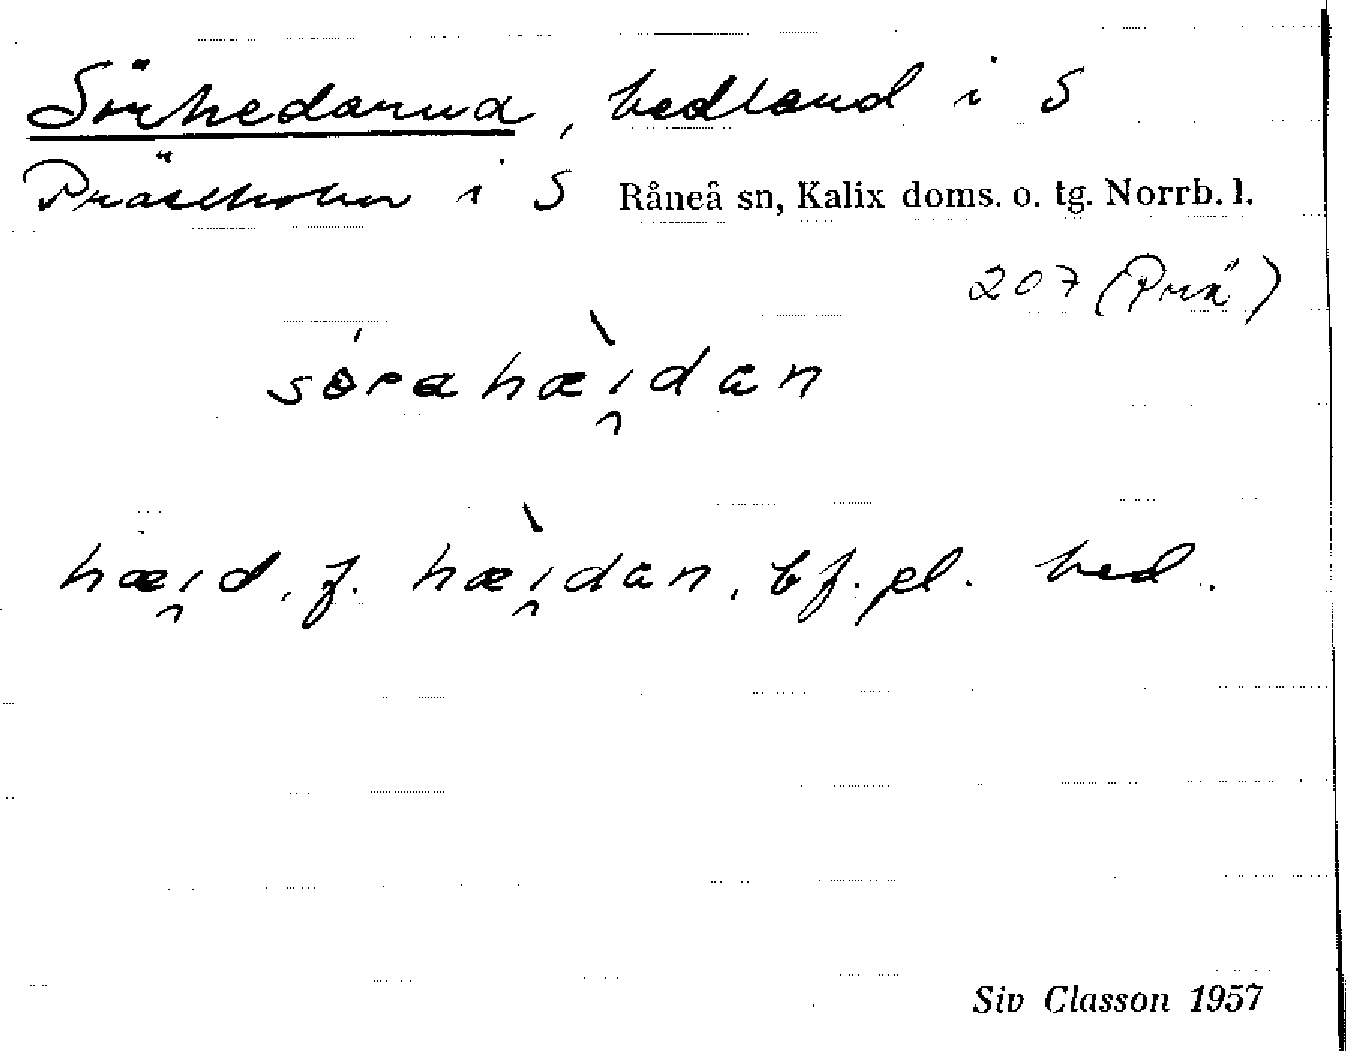 Sörhedarna, hedland i S
Prästholm i S Råneå sn, Kalix doms. o. tg. Norrb. l.
207 (Prä)
sɵ́rahæ̀i̯dan
hæi̯d, f. hæ̀i̯dan, bf. pl. hed.
Siv Classon 1957